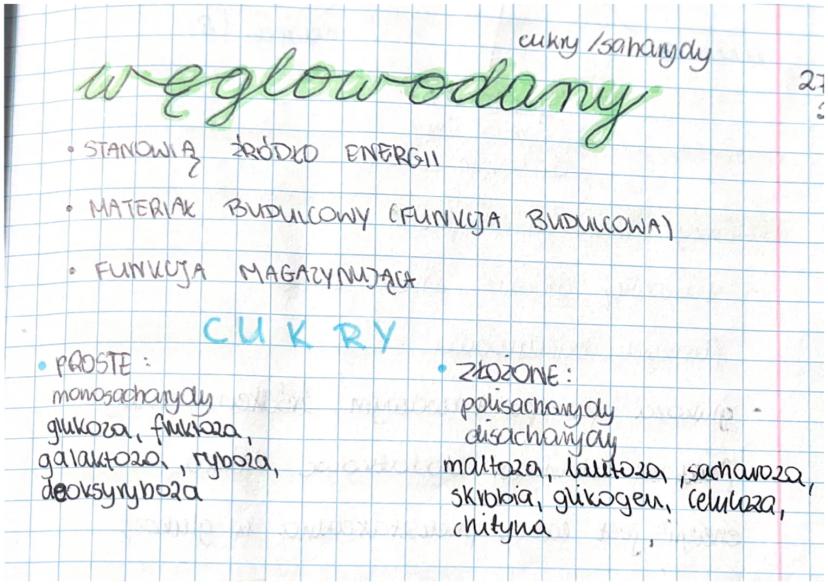 cukry /saharydy
węglowodany
27
• STANOWIĄ ŹRÓDŁO ENERGII
• MATERIAŁ BUDULCOWY (FUNKCJA BUDULCOWA)
• FUNKCJA MAGAZYNUJĄCA
CUKRY
• PROSTE:
monosacharydy
glukoza, fruktoza,
galaktoza, , ryboza,
deoksyryboza
• ZŁOŻONE:
polisacharydy
disacharydy
maltoza, laktoza, sacharoza,
skrobia, glikogen, celuloza,
chityna